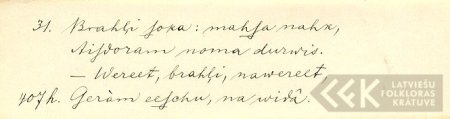 31. Brahļi ſoka: mahſa nahk,
Aiſdoram noma durwis.
— Wereet, brahļi, nawereet,
407 h. Geràm eeſchu, na widâ.
LATVIEŠU
FOLKLORAS
KRĀTUVE